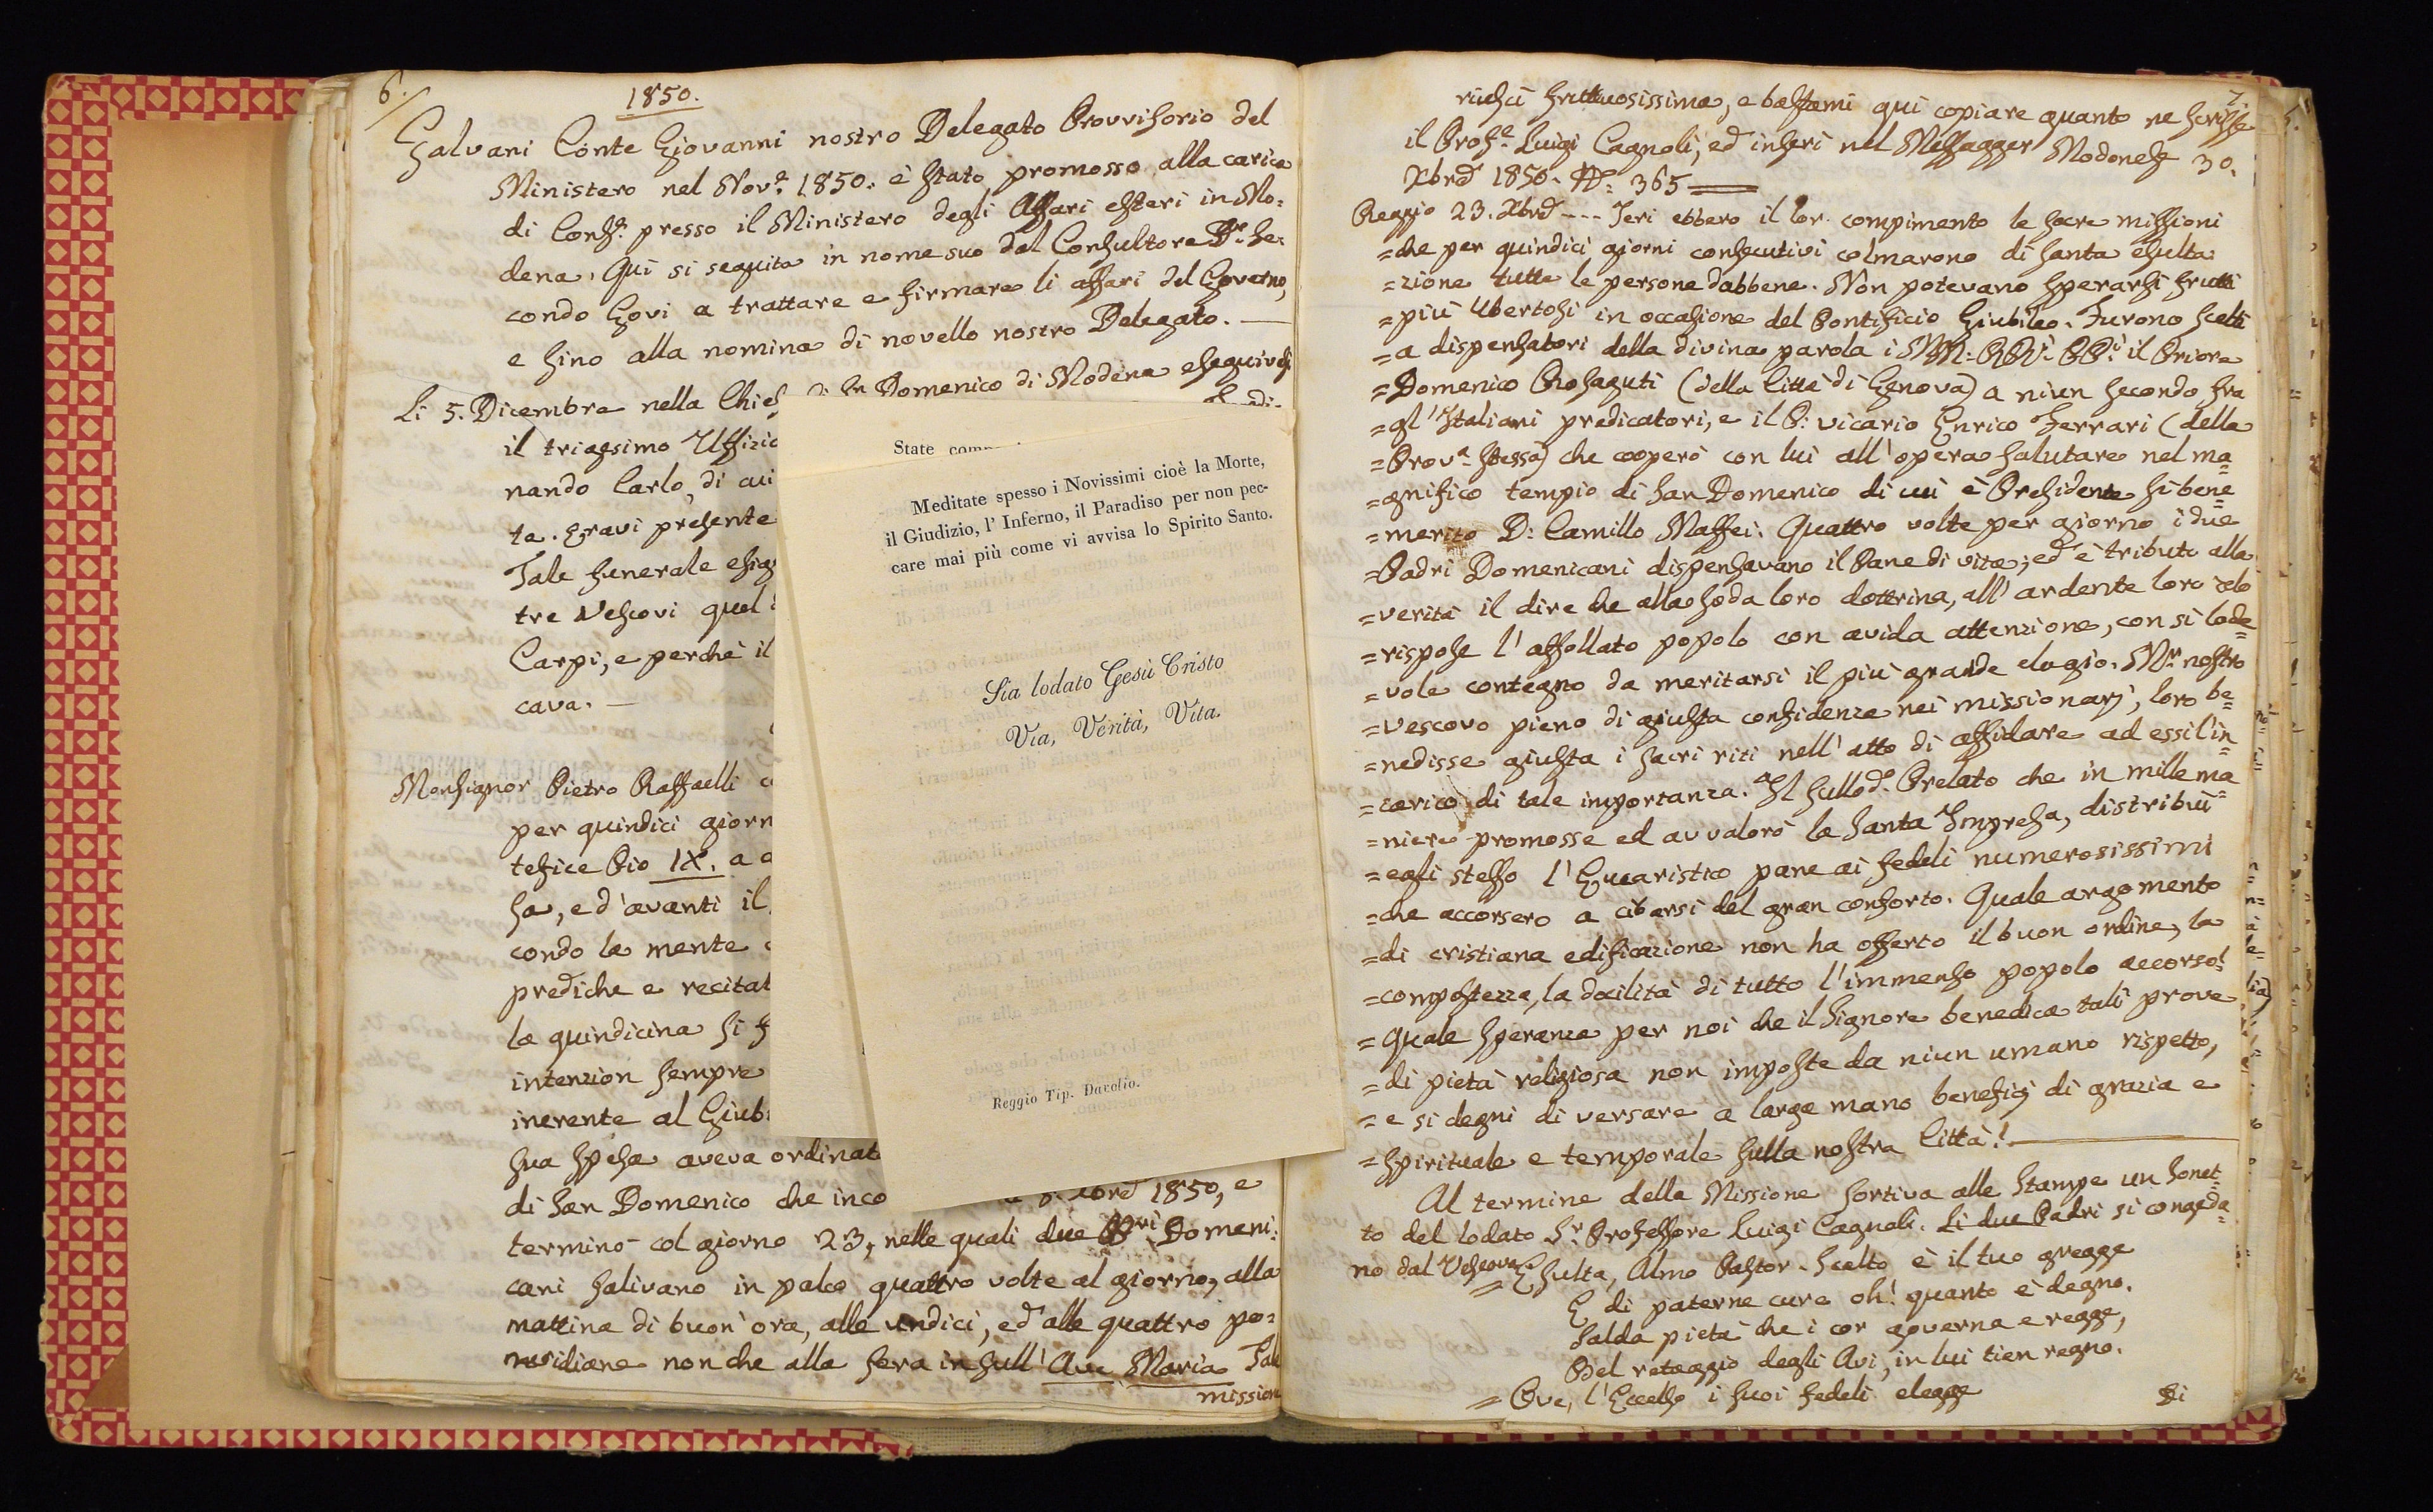 6.
1850.
Galvani Conte Giovanni nostro Delegato Provvisorio del
Ministero nel Nov.e 1850. è stato promosso alla carica
di Cons.e presso il Ministero degli Affari esteri in Mo=
dena. Qui si seguita in nome suo dal Consultore D.r Se=
condo Govi a trattare e firmare li affari del Governo,
e sino alla nomina di novello nostro Delegato. —
Li 5. Dicembre nella Chies di Sn Domenico di Modena eseguivasi
il triagesimo Uffizio
nando Carlo, di cui
ta. Eravi presente
Tale funerale
tre Vescovi quel
Carpi, e perchè il
cava. —
Monsignor Pietro Raffaelli
per quindici giorn
tefice Pio IX. a
sa, ed'avanti il
condo la mente
prediche e recitat
la quindicina si
intenzion sempre
inerente al Giub
sua spesa aveva ordinat
di San Domenico che inco 8. Xbre 1850, e
terminò col giorno 23, nelle quali due PP.ri Domeni=
cani salivano in palco quattro volte al giorno, alla
mattina di buon'ora, alle undici, ed alle quattro po=
meridiane non che alla sera in sull'Ave Maria. Tale
mission
State comp
Meditate spesso i Novissimi cioè la Morte,
il Giudizio, l' Inferno, il Paradiso per non pec-
care mai più come vi avvisa lo Spirito Santo.
Sia lodato Gesù Cristo
Via, Verità, Vita.
Reggio Tip. Davolio.
7.
riuscì fruttuosissima, e bastami qui copiare quanto ne scrisse
il Prof.e Luigi Cagnoli, ed inserì nel Messagger Modonese 30.
Xbre 1850. N.o 365
Reggio 23. Xbre ---- Ieri ebbero il lor compimento le sacre missioni
=che per quindici giorni consecutivi colmarono di santa esulta
=zione tutte le persone dabbene. Non potevano sperarsi frutti
=più ubertosi in occasione del Pontificio Giubileo. Furono scelti
=a dispensatori della divina parola i MM: RRi PPi il Priore
=Domenico Rosaguti (della Città di Genova) a niun secondo fra
=gl'Italiani predicatori, e il P: vicario Enrico Ferrari (della
=Prov.a stessa) che cooperò con lui all'opera salutare nel ma=
=gnifico tempio di San Domenico di cui è Presidente sì bene=
=merito D: Camillo Maffei: Quattro volte per giorno i due
=Padri Domenicani dispensavano il Pane di vita; ed è tributo alla
=verità il dire che alla soda loro dottrina, all'ardente loro zelo
=rispose l'affollato popolo con avida attenzione, con sì lode=
=vole contegno da meritarsi il più grande elogio. M.r nostro
=vescovo pieno di giusta confidenza nei missionarj, loro be=
=nedisse giusta i sacri riti nell'atto di affidare ad essi l'in=
=carico di tale importanza. Il sullod.o Prelato che in mille ma=
=niere promosse ed avvalorò la Santa Impresa, distribuì
=egli stesso l'Eucaristico pane ai fedeli numerosissimi
=che accorsero a cibarsi del gran conforto. Quale argomento
=di cristiana edificazione non ha offerto il buon ordine, la
=compostezza, la docilità di tutto l'immenso popolo accorso!
=Quale speranza per noi che il Signore benedica tali prove
=di pietà religiosa non imposte da niun umano rispetto,
=e si degni di versare a larga mano beneficj di grazia e
=spirituale e temporale sulla nostra Città!
Al termine della Missione sortiva alle stampe un Sonet=
to del lodato S.r Professore Luigi Cagnoli. Li due Padri si congeda=
no dal Vescovo
= Esulta, Almo Pastor. Scelto è il tuo gregge
E di paterne cure oh! quanto è degno.
Salda pietà che i cor governa e regge,
Bel retaggio degli Avi, in lui tien regno.
= Ove, l'Eccelso i suoi fedeli elegge
Di